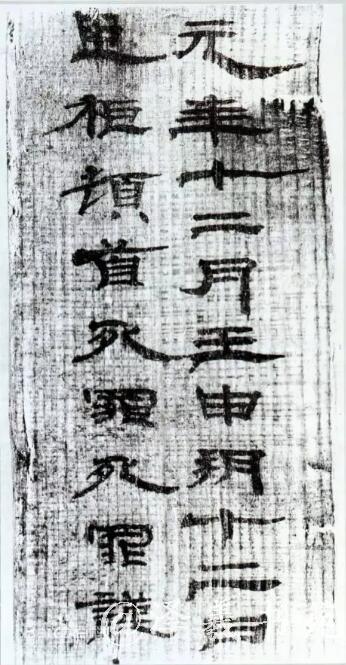 元年十二月壬申朔十二日
頓首死罪死罪謹